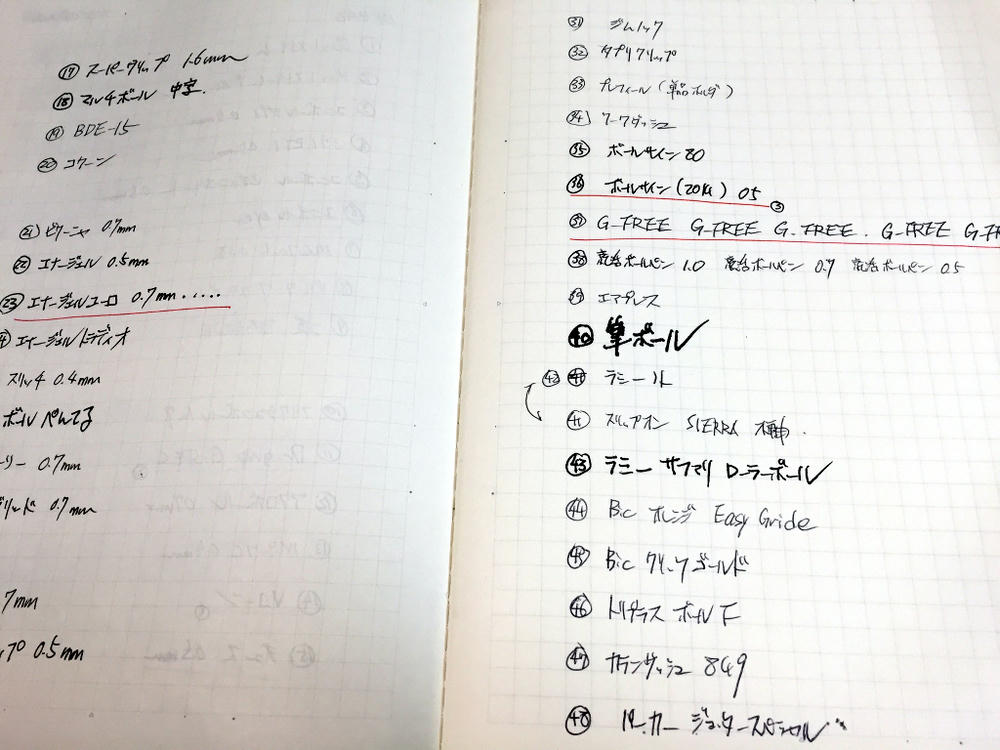 ⑰ スーパーグリップ 1.6mm
⑱ マルチボール 中字.
⑲ BDE-15
⑳ コクーン
㉑ ビクーニャ 0.7mm
㉒ エナージェル 0.5mm
㉓ エナージェルユーロ 0.7mm.....
エナージェルトラディオ
スリッチ 0.4mm
ボールぺんてる
ーリー 0.7mm
ブリッド 0.7mm
7mm
ップ 0.5mm
㉛ ジムノック
㉜ タプリクリップ
㉝ プレフィール (単品ホルダ)
㉞ ワークダッシュ
㉟ ボールサイン 80
㊱ ボールサイン (20%) 05 ③
㊲ G-FREE G-FREE G.FREE. G-FREE G-FR
㊳ 就活ボールペン 1.0 就活ボールペン 0.7 就活ボールペン 0.5
㊴ エマプレス
㊵ 筆ボール
㊷ ラミー ノト
㊶ スリップオン SIERRA 木軸.
㊸ ラミー サファリ ローラーボール
㊹ Bic オレンジ Easy Gride
㊺ Bic クリックゴールド
㊻ トリプラス ボール F
㊼ カランダッシュ 849
㊽ パーカー ジョッタースペシャル